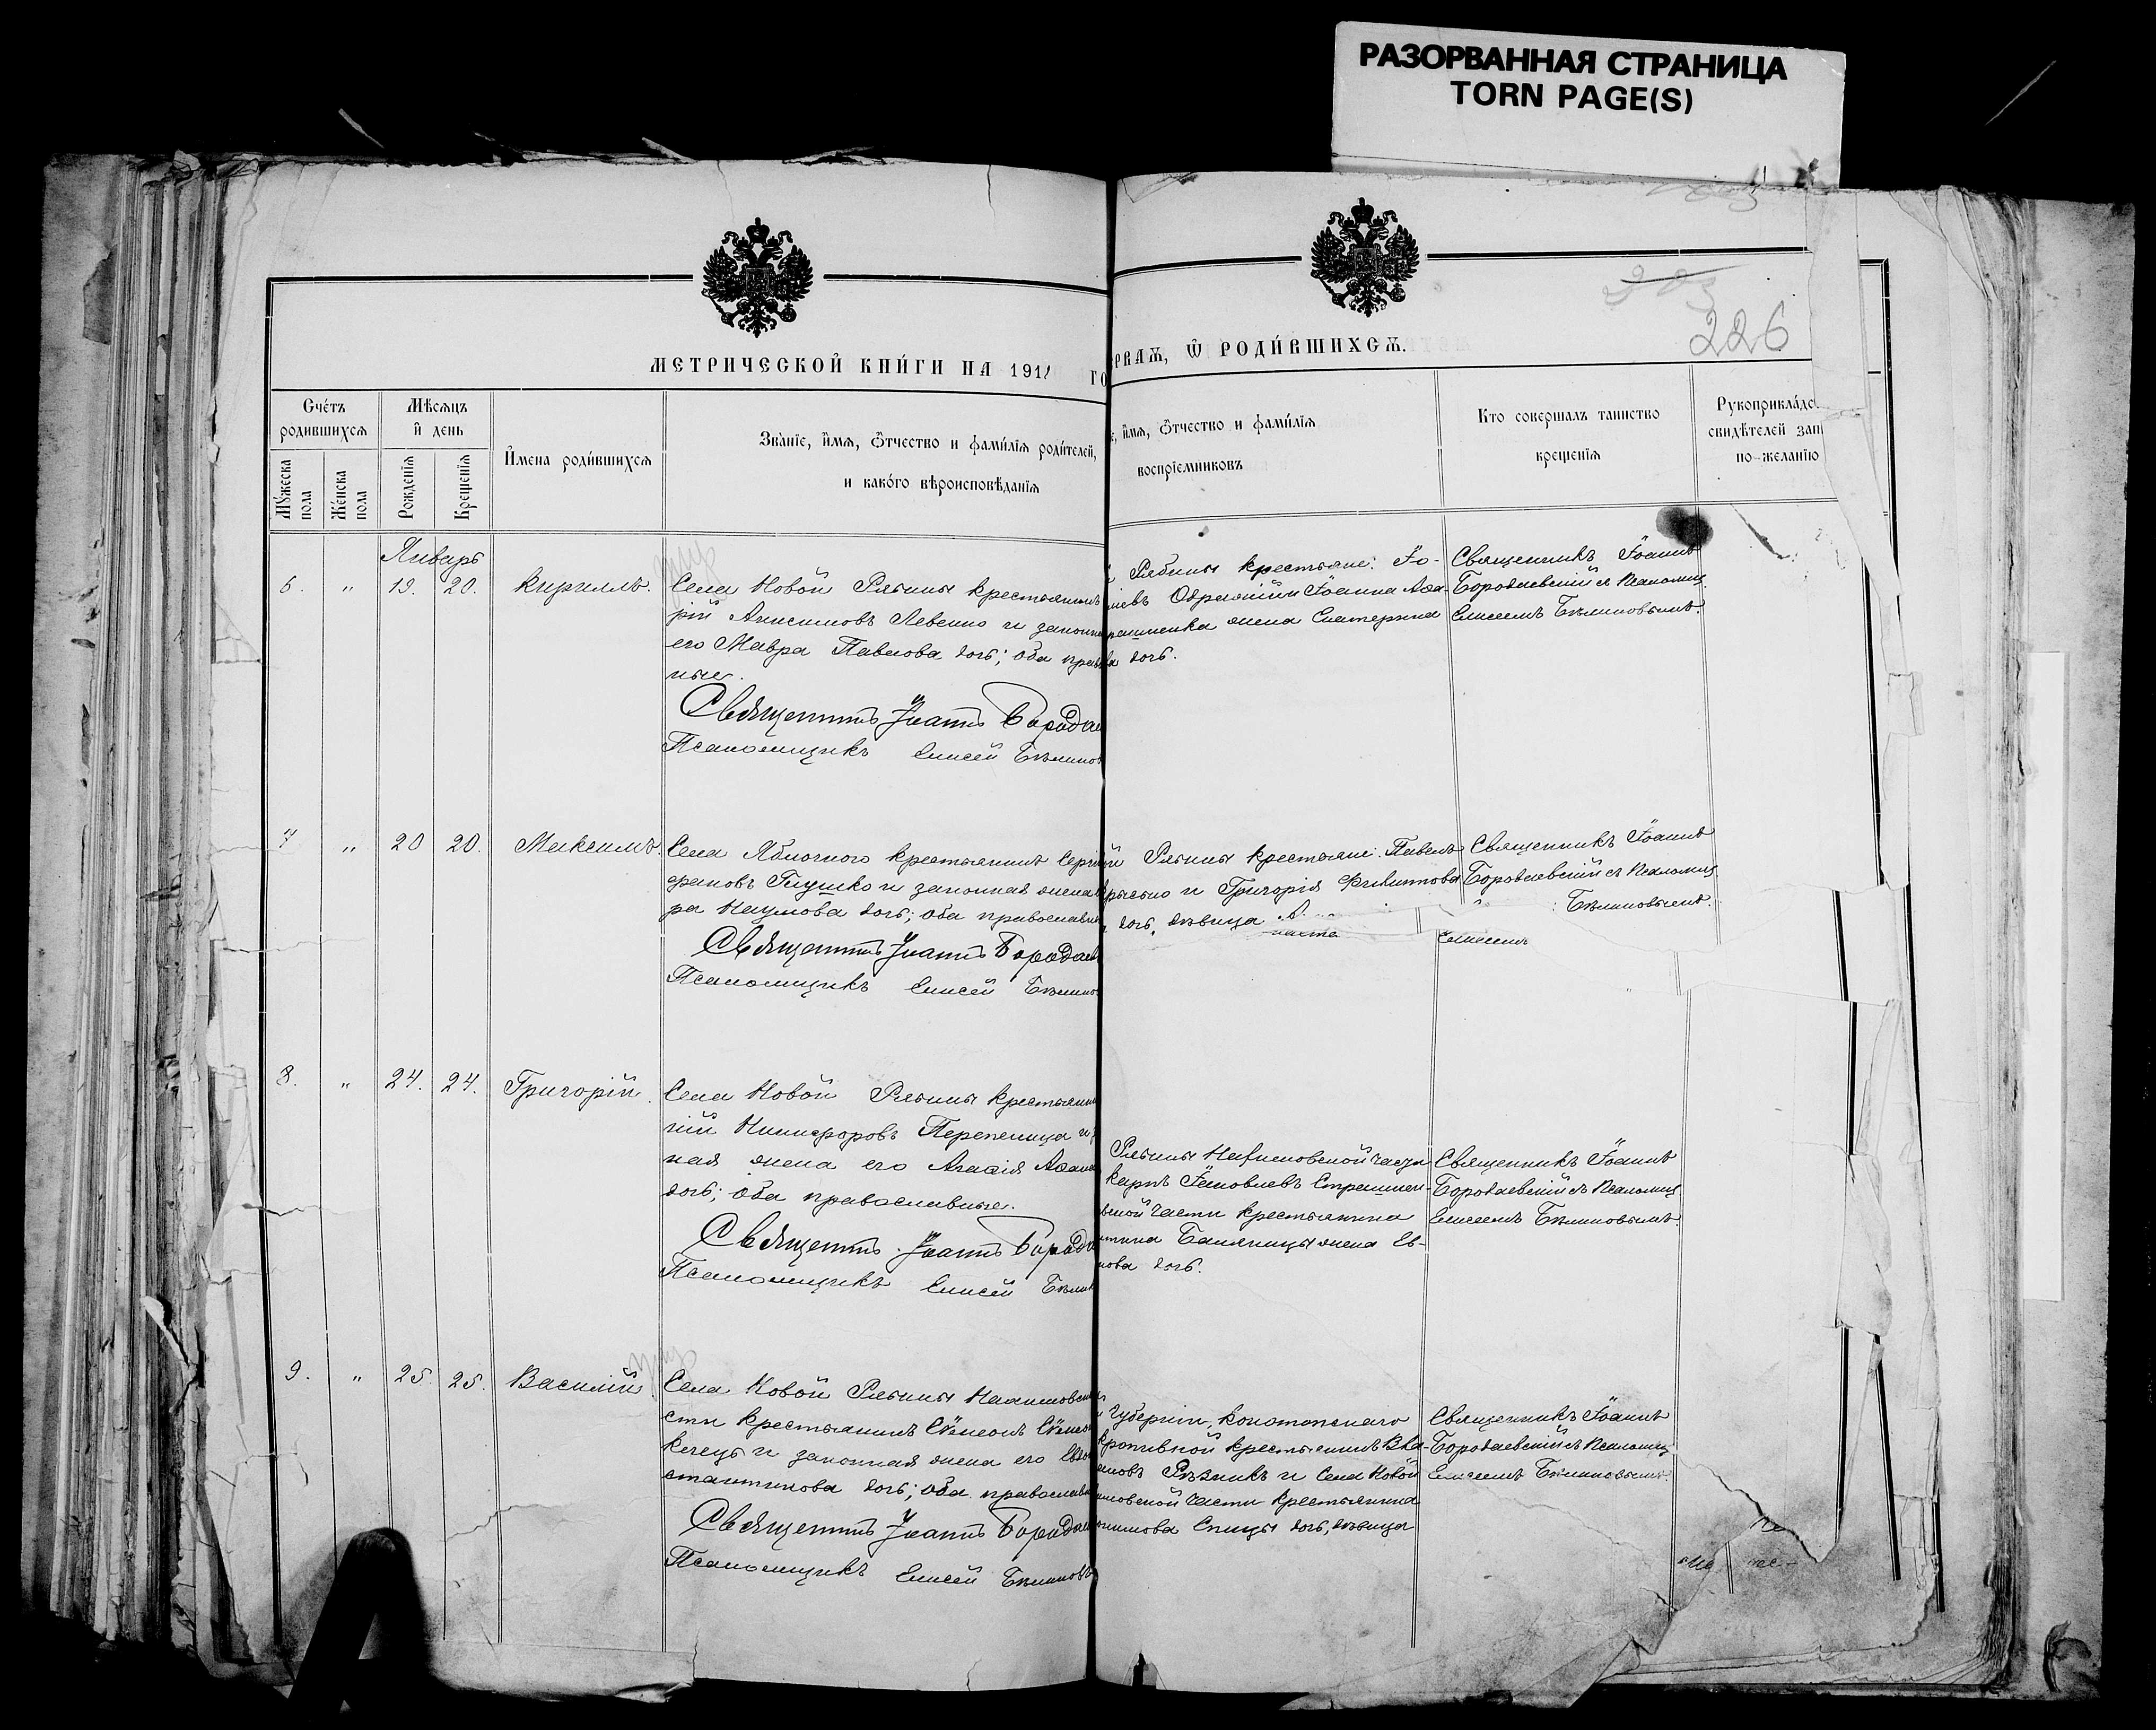 РАЗОРВАННАЯ СТРАНИЦА
TORN PAGE(S)
226
МЕТРИЧЕСКОЙ КНИ́ГИ НА 1911 ГО
РВАѦ, Ѿ РОДИ́ВШИХСѦ.
Счѐтъ родившихсѧ
Мꙋжеска пола
Же́нска пола
Мѣсѧцъ и҆ день
Рожденїѧ
Крещенїѧ
И҆мена роди́вшихсѧ
Зва́нїе, и҆мѧ, ѻ҆тчество и фамѝлїѧ роди́телей,
и како́го вѣроисповѣ́данїѧ
е, и҆мѧ, ѻ҆тчество и фамѝлїѧ
воспрїемниковъ
Кто совершалъ таинство
крещенїѧ
Рукоприкла́дс
свидѣтелей зап
по-желанїю
Январь
6. " 19. 20. Кириллъ.
Села Новой Рябины крестьянинъ
рій Анисимовъ Левенко и законна
его Мавра Павлова дочь; оба прав
ные.
Священникъ Іоаннъ Бородае
Псаломщикъ Елисей Бѣлинов
Рябины крестьяне: Іо-
Іоанна Аѳа-
жена Екатерина
ва дочь.
Священникъ Іоаннъ
Бородаевскій съ Псаломщ.
Елисеемъ Бѣлиновымъ.
7 " 20 20. Максимъ.
Села Яблочного крестьянинъ Сергій
фановъ Глушко и законная жена е
ра Наумова дочь; оба православн
Священникъ Іоаннъ Бородаев
Псаломщикъ Елисей Бѣлинов
й Рябины крестьяне: Павелъ
и Григорія Филиппова
дочь, дѣвица
Священникъ Іоаннъ
Бородаевскій съ Псаломщ
Елисеемъ Бѣлиновымъ.
8. " 24. 24. Григорій.
Села Новой Рябины крестьянин
гій Никифоровъ Перепелица и
ная жена его Агаѳія Аѳана
дочь; оба православные.
Священникъ Іоаннъ Борода
Псаломщикъ Елисей Бѣлин
Рябины части
карпъ Іаковлевъ
ской части крестьянина
жена Ев-
нова дочь.
Священникъ Іоаннъ
Бородаевскій съ Псаломщ
Елисеемъ Бѣлиновымъ.
9. " 25. 25. Василій.
Села Новой Рябины
сти крестьянинъ Сѵмеонъ Сѵмео
и законная жена его Евдо
стантинова дочь; оба православн
Священникъ Іоаннъ Бородае
Псаломщикъ Елисей Бѣлиновъ
Губерніи, Конотопскаго
кропивной крестьянинъ Вла-
Рѣзникъ и Села Новой
части крестьянина
дочь, дѣвица
Священникъ Іоаннъ
Бородаевскій съ Псаломщ
Елисеемъ Бѣлиновымъ.